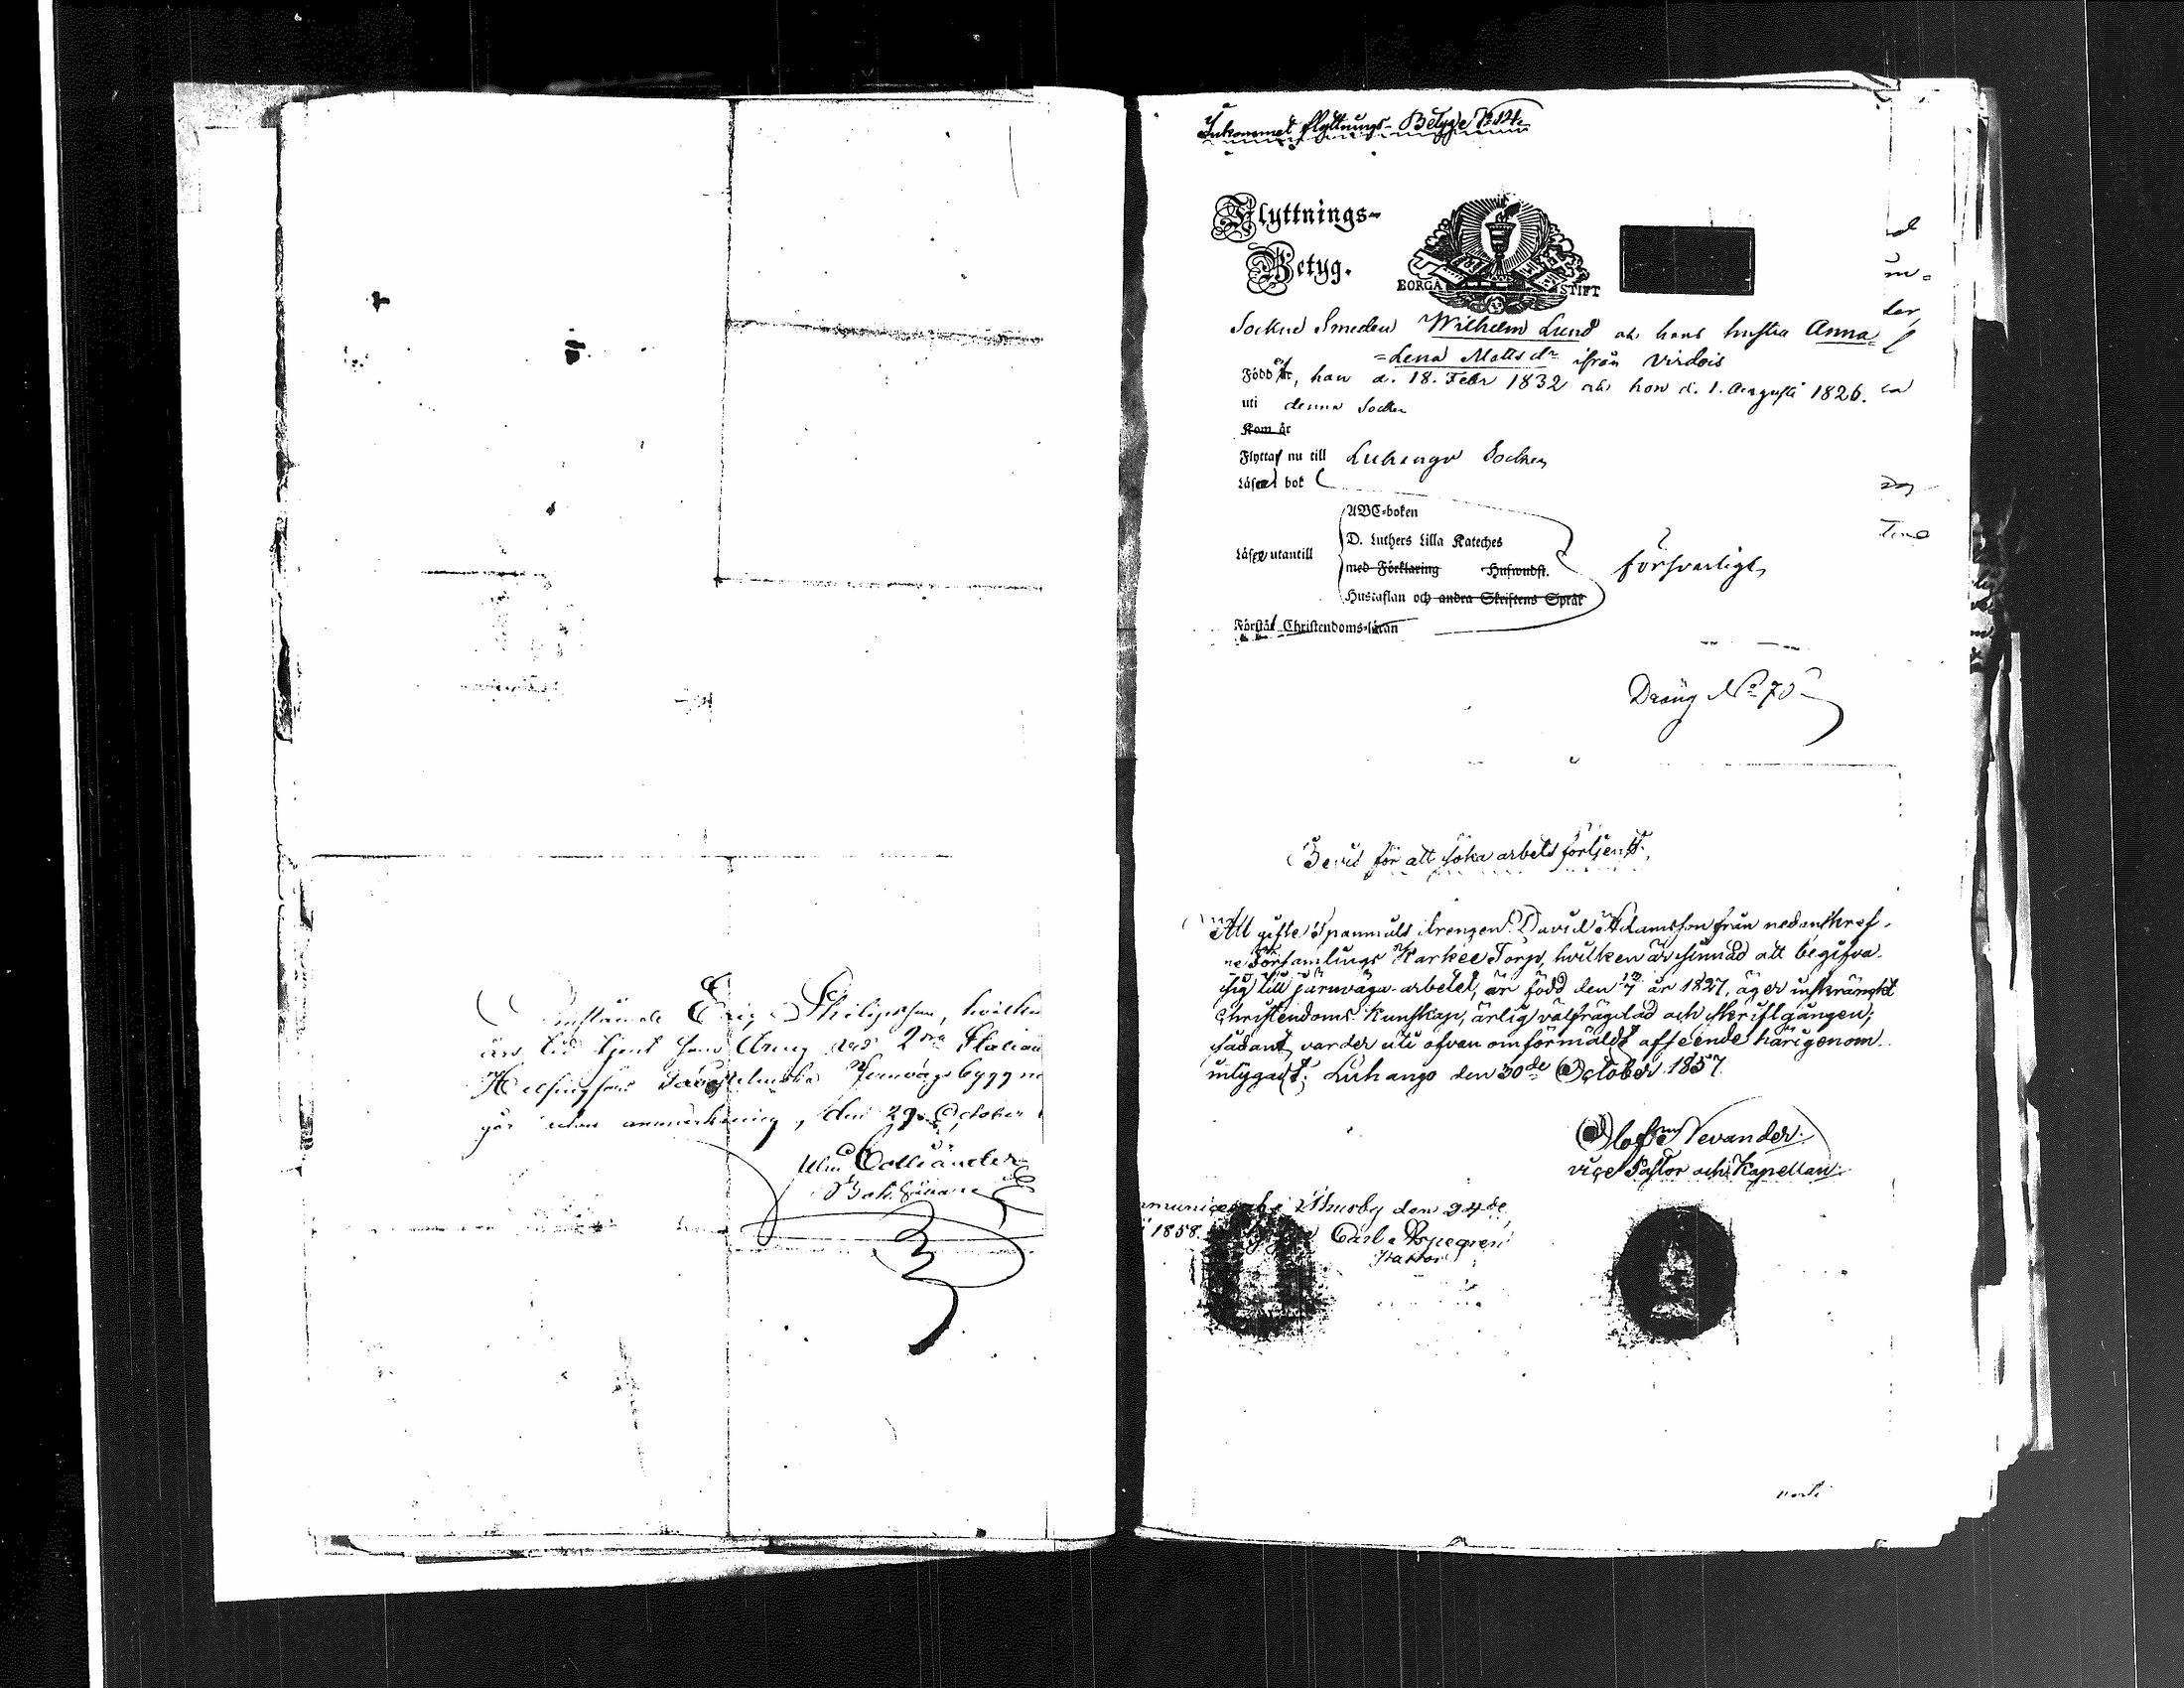 Erig Philipsson, hvilken
2dra Station
Helsingfors Tavastehuska Jernvägsbyggn
går utan anmärkning, den 29 October
Wm Colliander
Inkommet flyttnings-Betyg № 14.
Flyttnings-
Betyg.
BORGÅ STIFT
Sockne Smeden Wilhelm Lund och hans hustru Anna
=Lena Mattsdr ifrån Virdois
Född är, han d. 18. Febr 1832 och hon d. 1. Augusti 1826.
uti denna Socken
Kom är
Flyttat nu till Luhango Socken
Läser i bok
ABC-boken
D. Luthers Lilla Kateches
Läser utantill
med Förklaring Hufwudst.
försvarligt
Hustaflan och andra Skriftens Språk
Förstår Christendoms-läran
Dräng No 70
Bevis för att söka arbets förtjenst.
Att gifte Spanmåls drengen David Adamsson från nedanskref-
ne Församlings Karkee Torp, hvilken är sinnad att begifva
sig till järnvägs-arbetet, är född den 13/7 år 1827, äger inskränkt
Christendoms Kunskap, ärlig välfrägdad och skriftgången;
sådant varder uti ofvan omförmäldt afseende härigenom
intygadt; Luhango den 30de October 1857.
Olof Nevander.
vice Pastor och Kapellan.
Thusby den 24de
1858. Carl Aspegren
Pastor